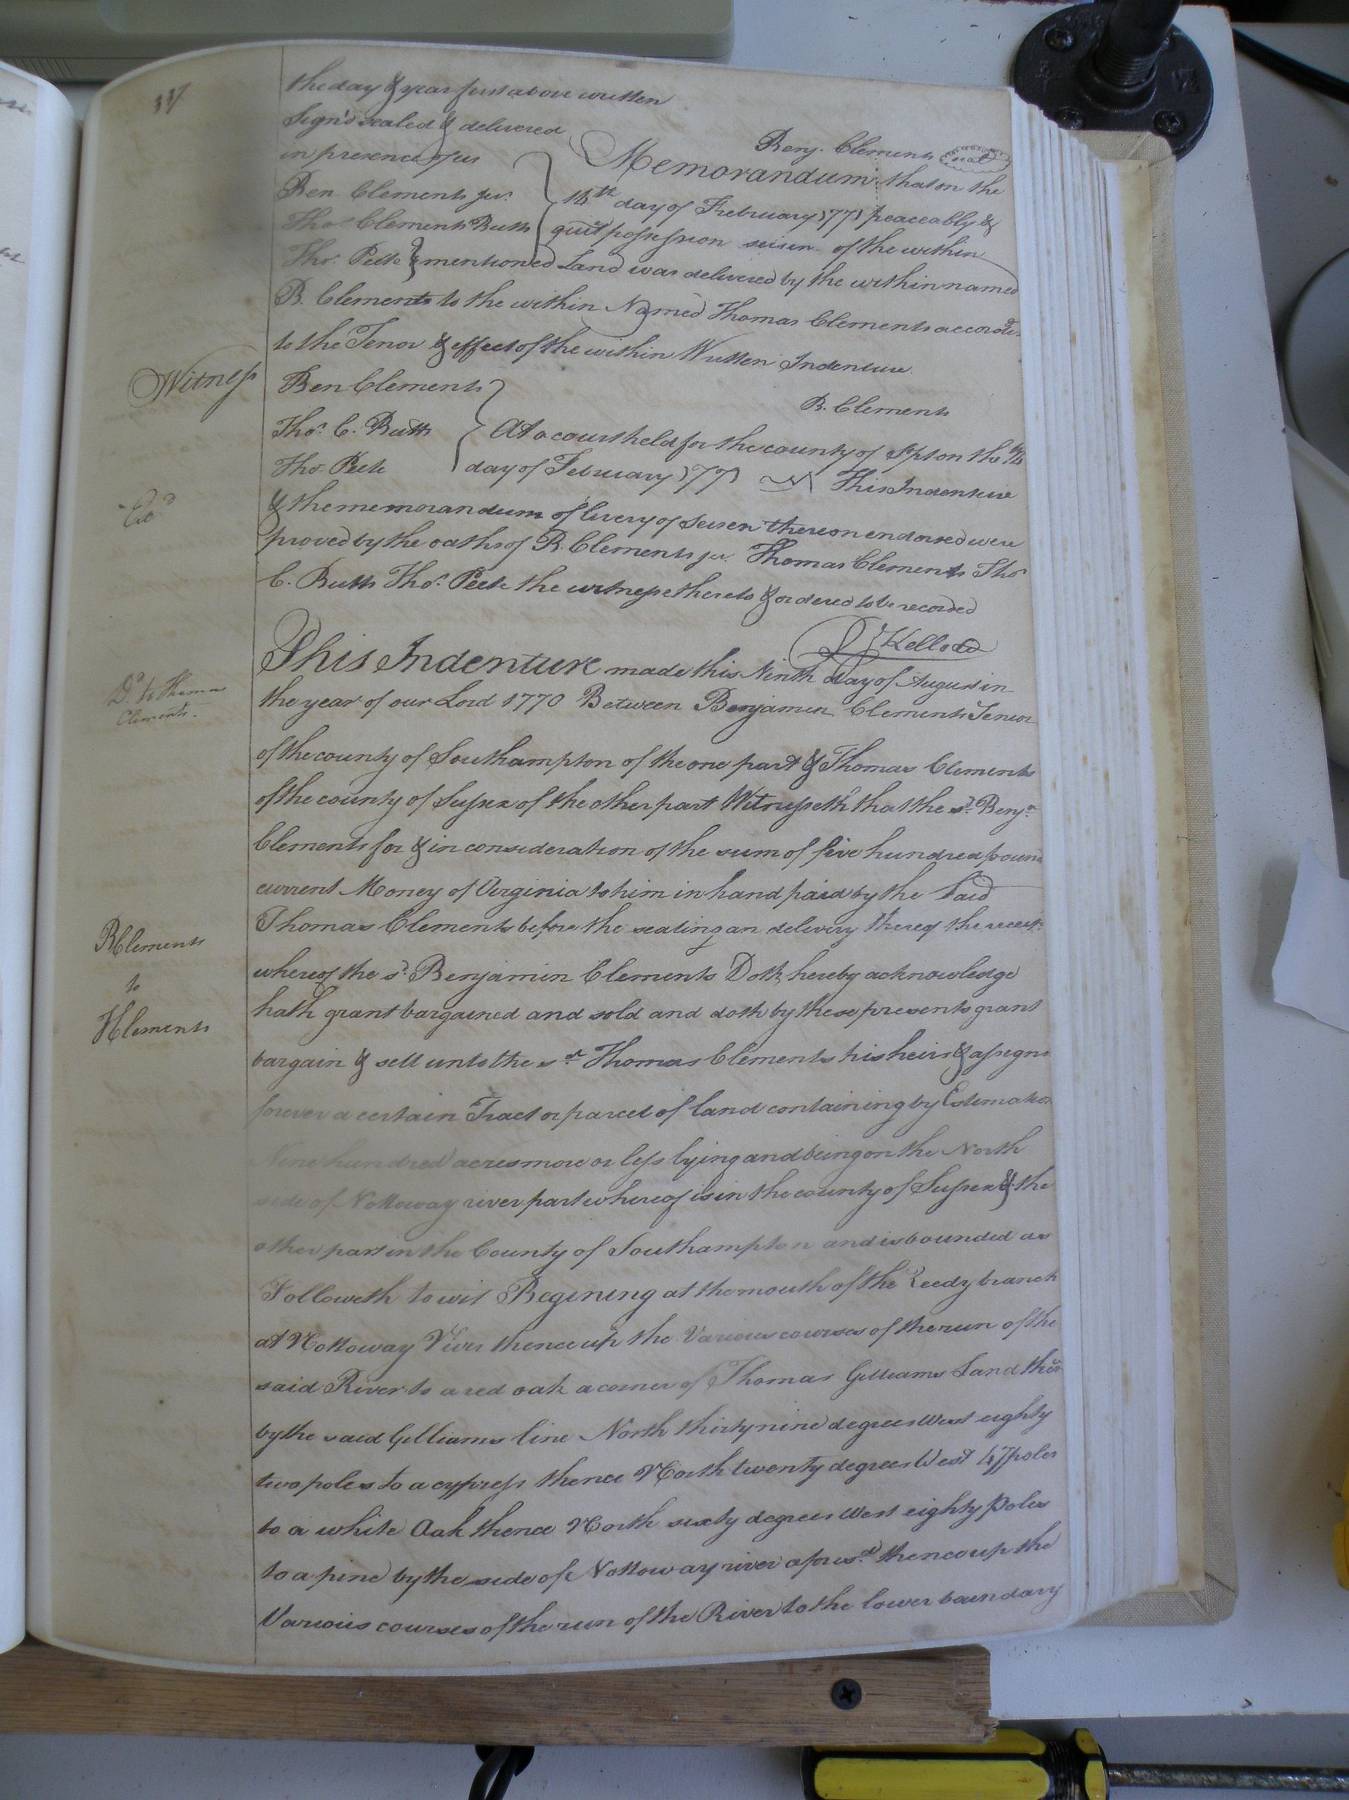 337
the day & year first above written
Sign'd sealed & delivered
in presence of us
Benj. Clements seal
Ben Clements jur.
Thos Clements Butts
Thos. Peete
Memorandum that on the
14th day of February 1771 peaceably &
quiet possession seisin of the within
mentioned Land was delivered by the within named
B. Clements to the within Named Thomas Clements accordg.
to the Tenor & effect of the within Written Indenture
B. Clements
Witness
Ben Clements
Thos. C. Butts
Thos Peete
At a court held for the county of Spton the 14th
day of February 1771 This Indenture
& the memorandum of livery of Seisen thereon endorsed were
proved by the oaths of B. Clements jur. Thomas Clements Thos
C. Butts Thos. Peete the witnesse thereto & ordered to be recorded
R Kello
Exd
Dd. to Thomas
Clements.
BClements
to
TClements
This Indenture made this Ninth day of August in
the year of our Lord 1770 Between Benjamin Clements Senior
of the county of Southampton of the one part & Thomas Clements
of the county of Sussex of the other part Witnesseth that the sd. Benjn.
Clements for & in consideration of the sum of five hundred pound
current Money of Virginia to him in hand paid by the Said
Thomas Clements before the sealing an delivery thereof the receit
whereof the sd. Benjamin Clements Doth hereby acknowledge
hath grant bargained and sold and doth by these presents grant
bargain & sell unto the sd. Thomas Clements his heirs & assigns
forever a certain Tract or parcel of land containing by Estimation
Nine hundred acres more or less lying and being on the North
side of Nottoway river part whereof is in the county of Sussex & the
other part in the County of Southampton and is bounded as
Followeth to wit Begining at the mouth of the Reedy branch
at Nottoway River thence up the Various courses of the run of the
said River to a red oak a corner of Thomas Gilliams Land then
by the said Gilliams line North thirty nine degrees West eighty
two poles to a cypress thence North twenty degrees West 47 poles
to a white Oak thence North sixty degrees West eighty Poles
to a pine by the side of Nottoway river aforesd. thence up the
Various courses of the run of the River to the lower boundary